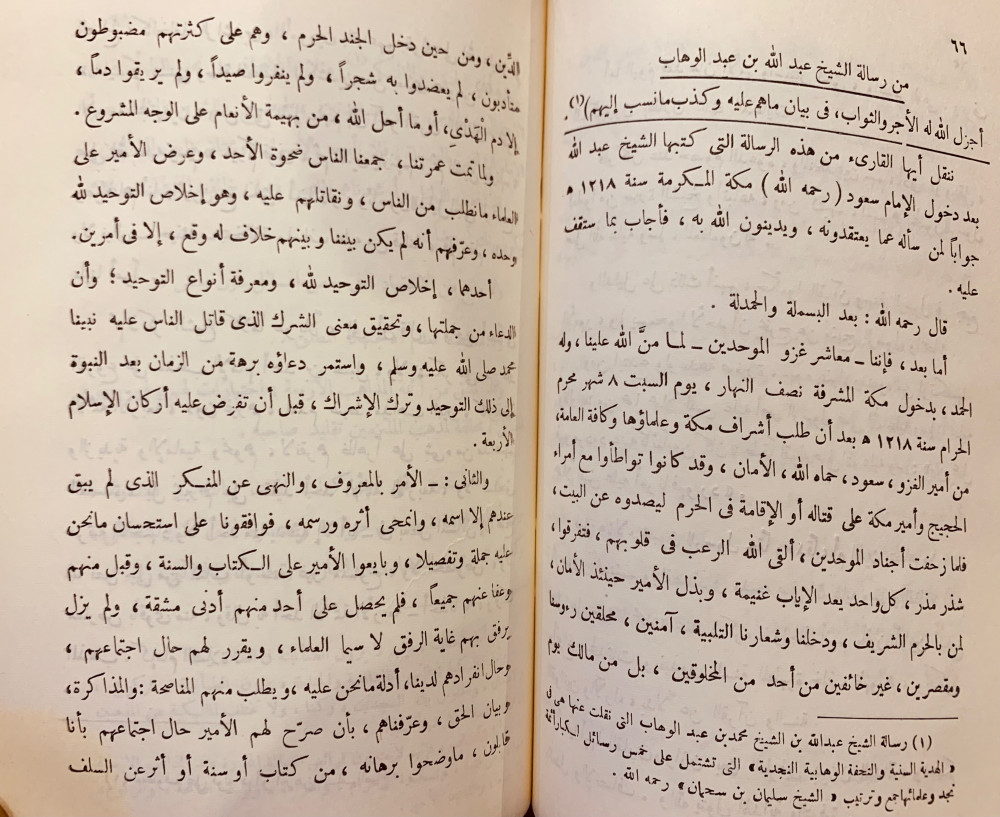 ٦٦
من رسالة الشيخ عبد الله بن عبد الوهاب
أجزل الله له الأجر والثواب، فى بيان ماهم عليه وكذب مانسب إليهم)(١).
ننقل أيها القارىء من هذه الرسالة التى كتبها الشيخ عبد الله
بعد دخول الإمام سعود (رحمه الله) مكة المكرمة سنة ١٢١٨ ه
جواباً لمن سأله عما يعتقدونه، ويدينون الله به، فأجاب بما ستقف
عليه.
قال رحمه الله: بعد البسملة والحمدلة.
أما بعد، فإننا ـ معاشر غزو الموحدين ـ لما منَّ الله علينا، وله
الحمد، بدخول مكة المشرفة نصف النهار، يوم السبت ٨ شهر محرم
الحرام سنة ١٢١٨ ه بعد أن طلب أشراف مكة وعلماؤها وكافة العامة،
من أمير الغزو، سعود، حماه الله، الأمان، وقد كانوا تواطأوا مع أمراء
الحجيج وأمير مكة على قتاله أو الإقامة فى الحرم ليصدوه عن البيت،
فلما زحفت أجناد الموحدين، ألقى الله الرعب فى قلوبهم، فتفرقوا،
شذر مذر، كل واحد يعد الإياب غنيمة، وبذل الأمير حينئذ الأمان،
لمن بالحرم الشريف، ودخلنا وشعارنا التلبية، آمنين، محلقين رءوسنا
ومقصرين، غير خائفين من أحد من المخلوقين، بل من مالك يوم
(١) رسالة الشيخ عبدالله بن الشيخ محمد بن عبد الوهاب التى نقلت عنها هى فى
«الهدية السنية والتحفة الوهابية النجدية» التى تشتمل على خمس رسائل لكبار أئمة
نجد وعلمائها جمع وترتيب «الشيخ سليمان بن سحمان» رحمه الله.
الدِّين، ومن حين دخل الجند الحرم، وهم على كثرتهم مضبوطون
متأدبون، لم يعضدوا به شجراً، ولم ينفروا صيداً، ولم يريقوا دماً،
إلا دم الْهَدْيِ، أو ما أحل الله، من بهيمة الأنعام على الوجه المشروع.
ولما تمت عمرتنا، جمعنا الناس ضحوة الأحد، وعرض الأمير على
العلماء مانطلب من الناس، ونقاتلهم عليه، وهو إخلاص التوحيد لله
وحده، وعرّفهم أنه لم يكن بيننا وبينهم خلاف له وقع، إلا فى أمرين.
أحدهما، إخلاص التوحيد لله، ومعرفة أنواع التوحيد؛ وأن
الدعاء من جملتها، وتحقيق معنى الشرك الذى قاتل الناس عليه نبينا
محمد صلى الله عليه وسلم، واستمر دعاؤه برهة من الزمان بعد النبوة
إلى ذلك التوحيد وترك الإشراك، قبل أن تفرض عليه أركان الإسلام
الأربعة.
والثانى: ـ الأمر بالمعروف، والنهى عن المنكر الذى لم يبق
عندهم إلا اسمه، وانمحى أثره ورسمه، فوافقونا على استحسان مانحن
عليه جملة وتفصيلا، وبايعوا الأمير على الكتاب والسنة، وقبل منهم
وعفا عنهم جميعاً، فلم يحصل على أحد منهم أدنى مشقة، ولم يزل
يرفق بهم غاية الرفق لا سيما العلماء، ويقرر لهم حال اجتماعهم،
وحال انفرادهم لدينا، أدلة مانحن عليه، ويطلب منهم المناصحة: والمذاكرة،
وبيان الحق، وعرّفناهم، بأن صرّح لهم الأمير حال اجتماعهم بأنا
قابلون، ماوضحوا برهانه، من كتاب أو سنة أو أثر عن السلف